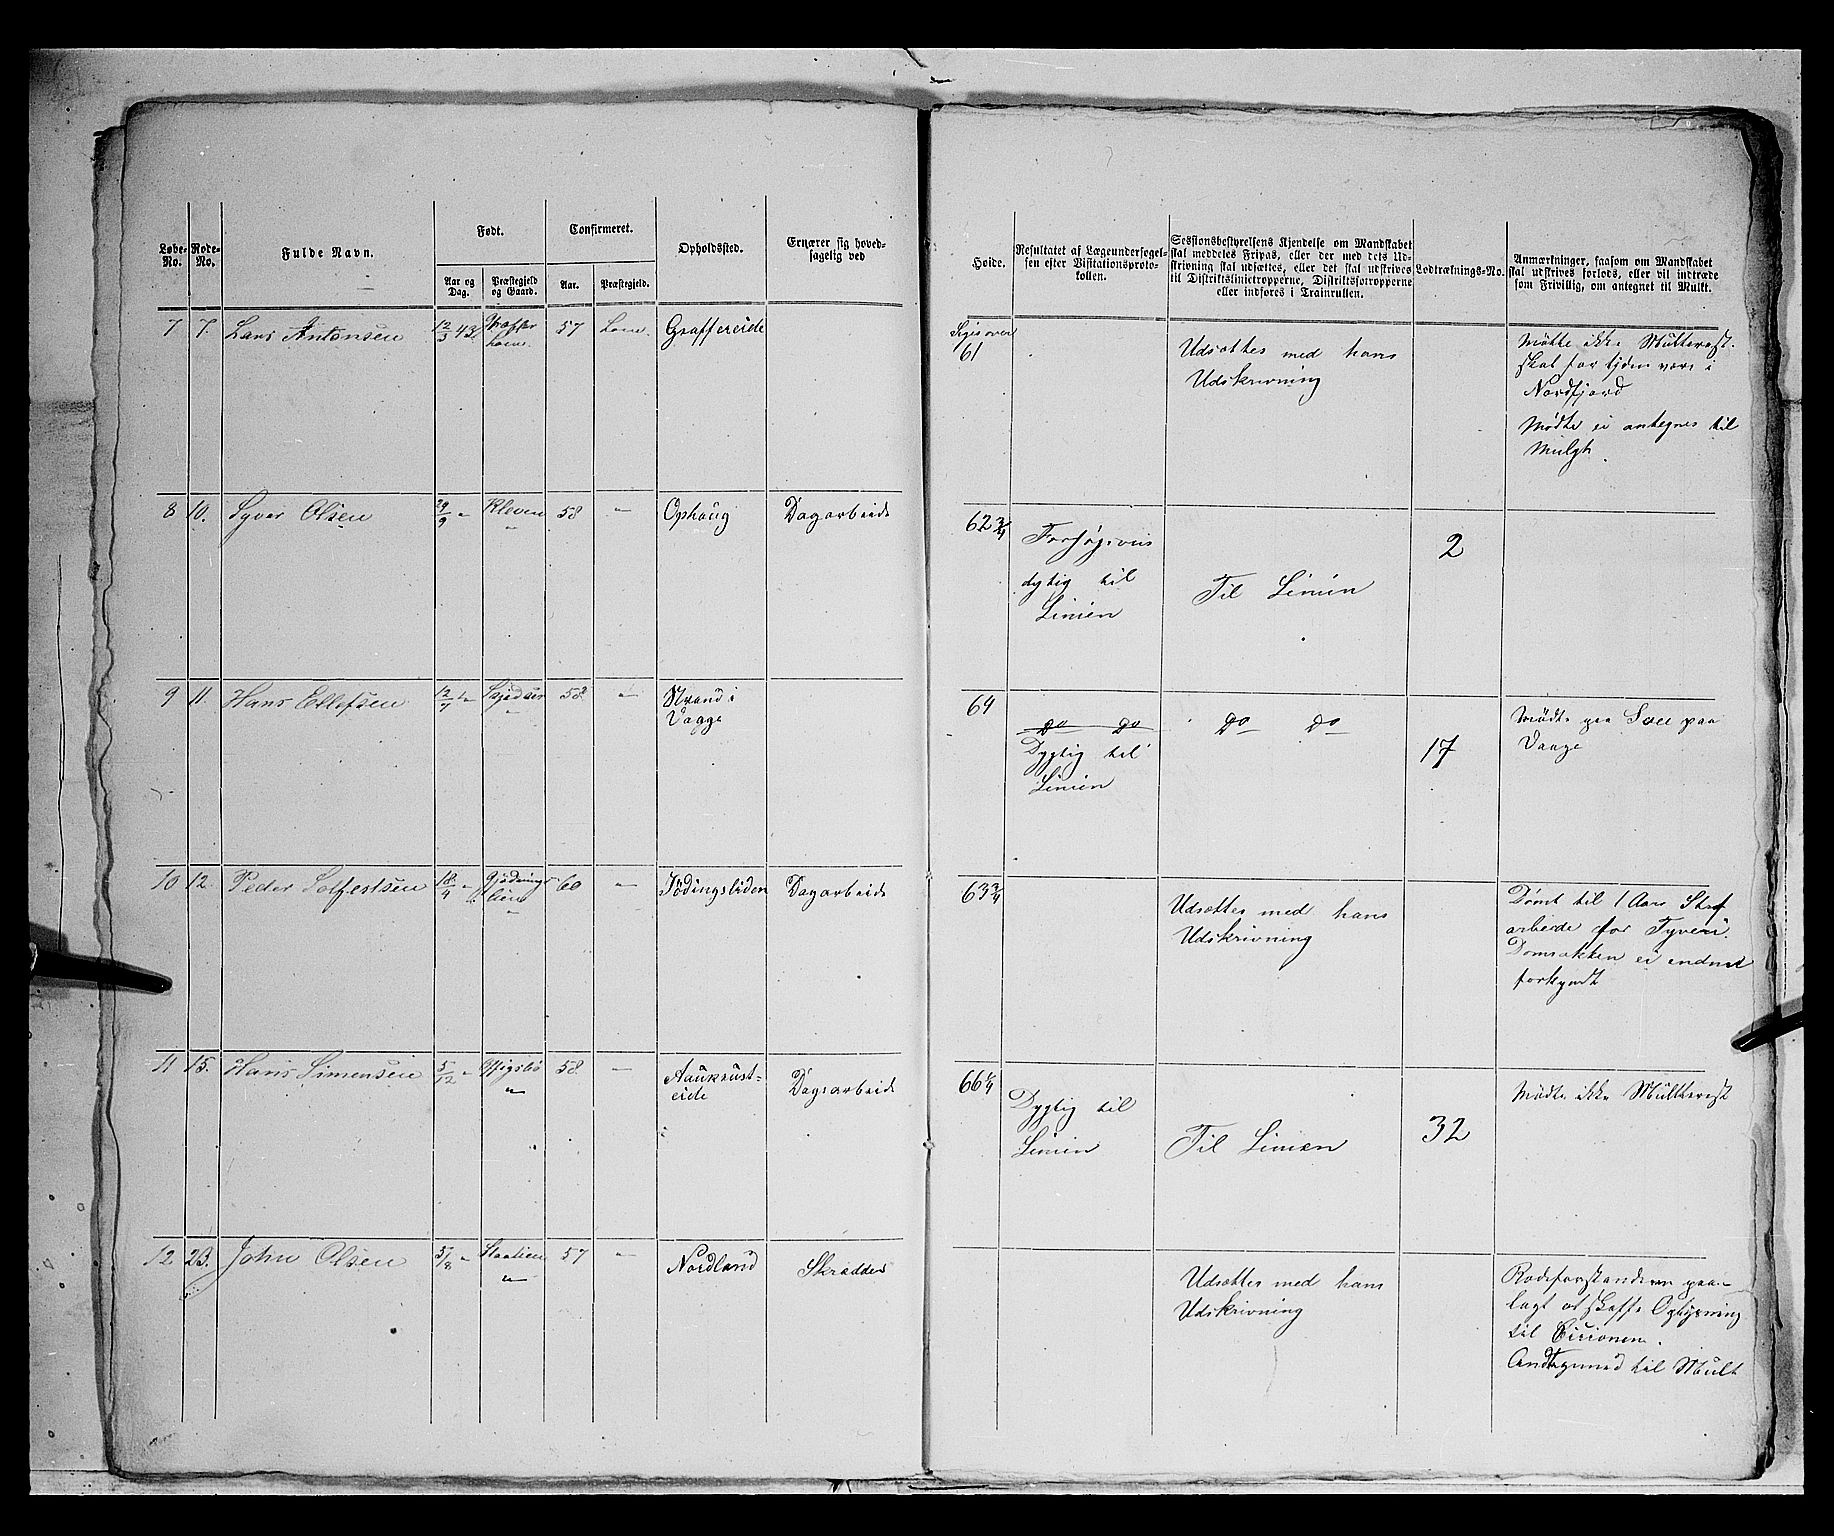 Løbe-No.
Rode-No.
Fulde Navn.
Født.
Aar og Dag.
Præstegjeld og Gaard.
Confirmeret.
Aar.
Præstegjeld.
Opholdssted.
Ernærer sig hoved-
sagelig ved
Høide.
Resultatet af Lægeundersøgel-
sen efter Visitationsproto-
kollen.
Sessionsbestyrelsens Kjendelse om Mandskabet
skal meddeles Fripas, eller der med dets Ud-
skrivning skal udsættes, eller det skal udskrives
til Distriktslinietropperne, Distriktsforropperne
eller indføres i Trainrullen.
Lodtræknings-No.
Anmærkninger, saasom om Mandskabet
skal udskrives forlods, eller vil indtræde
som Frivillig, om antegnet til Mulkt.
7 7. Lars Antonsen 12/3 43 Lom 57 Lom. Graffereide
61
Udsættes med hans
Udskrivning
Mødte ikke
skal for tiden være i
Nordfjord
Mødte ei antegnes til
Mulgt
8 10. Syver Olsen 29/9 " Kleven 58 " Ophaug Dagarbeide
62 3/4
Forsøgsvis
dygtig til
Linien
Til Linien
2
9 11. Hans Ellefsen 12/7 58 " Strand i
Vagge
64
Do Do
Dygtig til
Linien
Do Do
17
Mødte paa
Vaage
10 12. Peder Solfestsen 18/4 " 60 " Jödingsliden Dagarbeide
63 3/4
Udsættes med hans
Udskrivning
Dømt til 1 Aars Straf
arbeide for Tyveri.
Domsakten ei endnu
forkyndt
11 15. Hans Simensen 5/12 " 58 " Aukrust-
eide
Dagsarbeide
66 1/4
Dygtig til
Linien
Til Linien
32
Mødte ikke
12 23. John Olsen " 57 " Nordland Skrædder
Udsættes med hans
Udskrivning
Rodeforstanderen paa-
lagt at skaffe Oplysning
til
til Mult